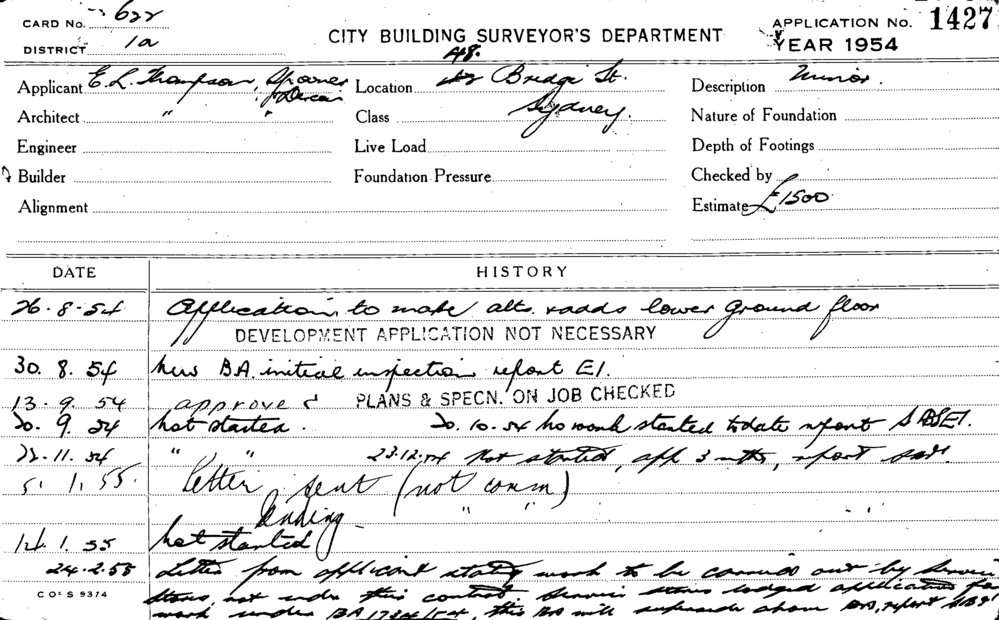 CARD No. 622
DISTRICT 1a
CITY BUILDING SURVEYOR'S DEPARTMENT
APPLICATION No. 1427
YEAR 1954
Applicant E. L. Thompson, Spooner
Location 48. Bridge St.
Description Minor.
Architect " "
Class Sydney.
Nature of Foundation
Engineer
Live Load
Depth of Footings
Builder
Foundation Pressure
Checked by
Alignment
Estimate £1500
DATE HISTORY
26.8.54 Application to make alts. & adds lower Ground floor
DEVELOPMENT APPLICATION NOT NECESSARY
30.8.54 New B.A. initial inspection report E1.
13.9.54 approved PLANS & SPECN. ON JOB CHECKED
20.9.54 not started. 20.10.54 no work started to date report
22.11.54 " " 23.12.54 Not started, app 3 mths, report
5.1.55. Letter sent (not comm)
Pending " " "
14.1.55 not started
24.2.55 Letter from applicant stating work to be carried out by
not under this contract. lodged application for
work under BA 1734/54, this BA will supersede above BA, report
C OF S 9374